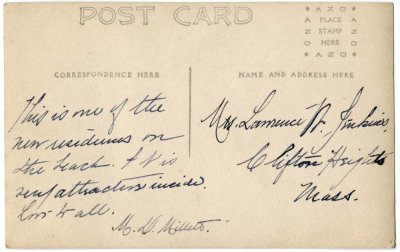 POST CARD
AZO
PLACE
STAMP
HERE
AZO
CORRESPONDENCE HERE
NAME AND ADDRESS HERE
This is one of the
new residences on
the beach. It is
very attractive inside.
Love to all.
M. D. Millett.
Mrs. Lawrence W. Jenkins,
Clifton Heights
Mass.